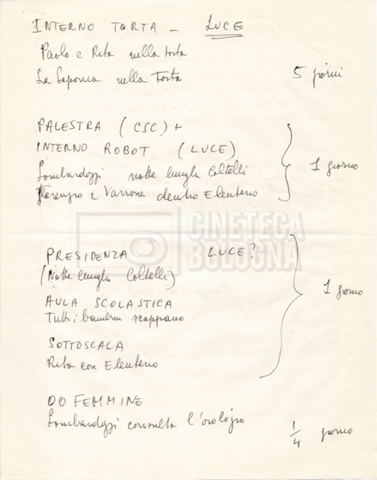 INTERNO TORTA - LUCE
Paolo e Rita nella torta
La Saponna nella torta
5 giorni
PALESTRA (CSC) +
INTERNO ROBOT (LUCE)
Lombardozzi notte lunghi coltelli
Terenzio e Varrone dentro Eleuterio
1 giorno
CINETECA
BOLOGNA
PRESIDENZA LUCE?
(Notte lunghi Coltelli)
AULA SCOLASTICA
Tutti i bambini scappano
1 giorno
SOTTOSCALA
Rita con Eleuterio
OO FEMMINE
Lombardozzi consulta l'orologio
1/4 giorno